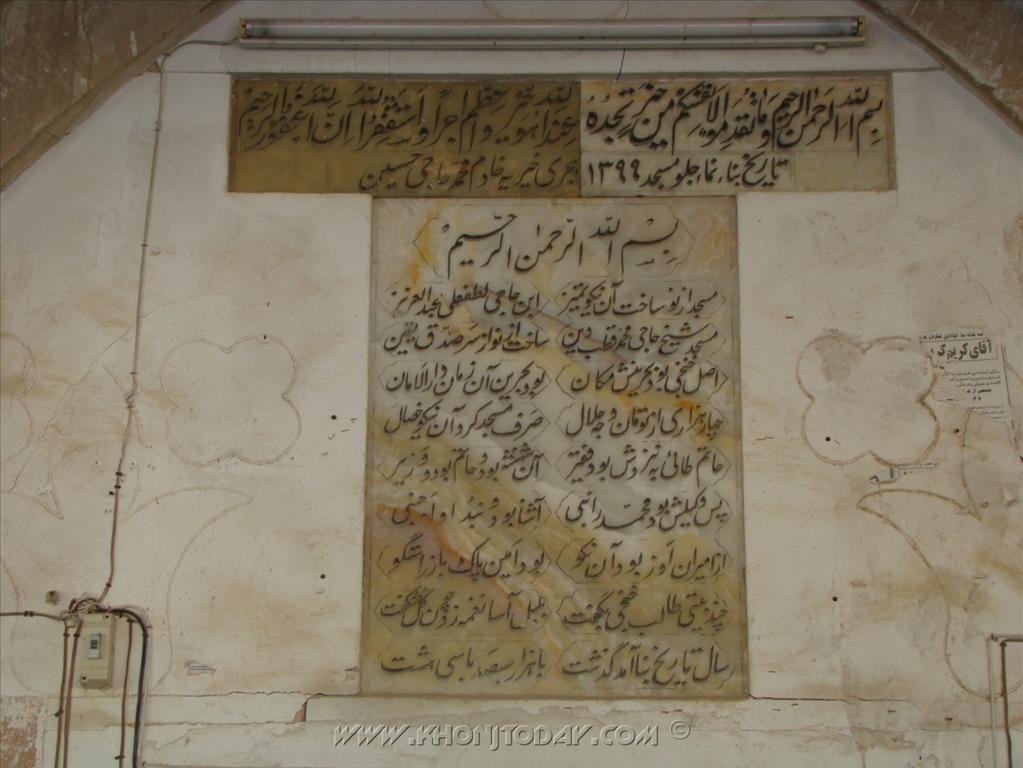 بسم الله الرحمن الرحیم وما تقدموا لانفسکم من خیر تجدوه
عندالله هو خیر و اعظم اجرا واستغفرالله ان الله غفور الرحیم
تاریخ بناء نماء جلو مسجد ۱۳۹۹
هجری خیریه خادم محمد حاجی حسین
بسم الله الرحمن الرحیم
مسجد از نو ساخت آن نیکو تمیز این حاجی لطفعلی عبدالعزیز
مسجد شیخ حاجی محمد قطب دین ساخت از نو از سر صدق یقین
اصل خنجی بود بحرینش مکان بود بحرین آن زمان دارالامان
چهار هزاری از تومان وجه حلال صرف مسجد کرد آن نیکو خصال
حاتم طائی به نزدش بود فقیر آن شسته بود حاتم بود وزیر
پس وکیلش بود محمد آشنا بود و نبد او اجنبی
از امیران اوز بود آن نکو بود امین پاک باز راستگو
چند بیتی طالب خنجی بگفت بلبل آسا نغمه زد چون گل شگفت
سال تاریخ بنا آمد گذشت با هزار سیصد با سی هشت
آقای کریم
www.khonjtoday.com ©